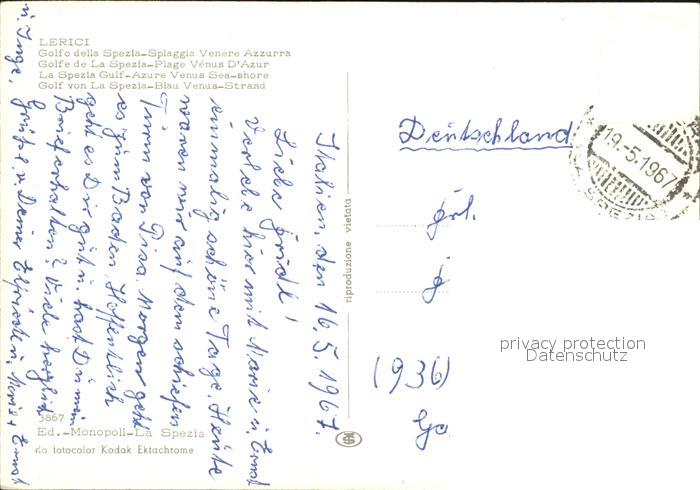 LERICI
Golfo della Spezia-Spiaggia Venere Azzurra
Golfe de La Spezia-Plage Vénus D'Azur
La Spezia Gulf-Azure Venus Sea-shore
Golf von La Spezia-Blau Venus-Strand
Italien, den 16.5.1967.
Liebe Gridl!
Verlebe hier mit Marie u. Ernst
einmalig schöne Tage. Heute
waren wir auf dem schiefen
Turm von Pisa. Morgen geht
es zum Baden. Hoffentlich
geht es Dir gut u. hast Du mein
Brief erhalten? Viele herzlich
Grüße v. Deiner Elfriede u. Marie + Ernst
u. Inge,
3867
Ed.-Monopoli-La Spezia
da fotocolor Kodak Ektachrome
riproduzione vietata
Deutschland
19.-5.1967
SPEZIA
Frl.
(936)
privacy protection
Datenschutz